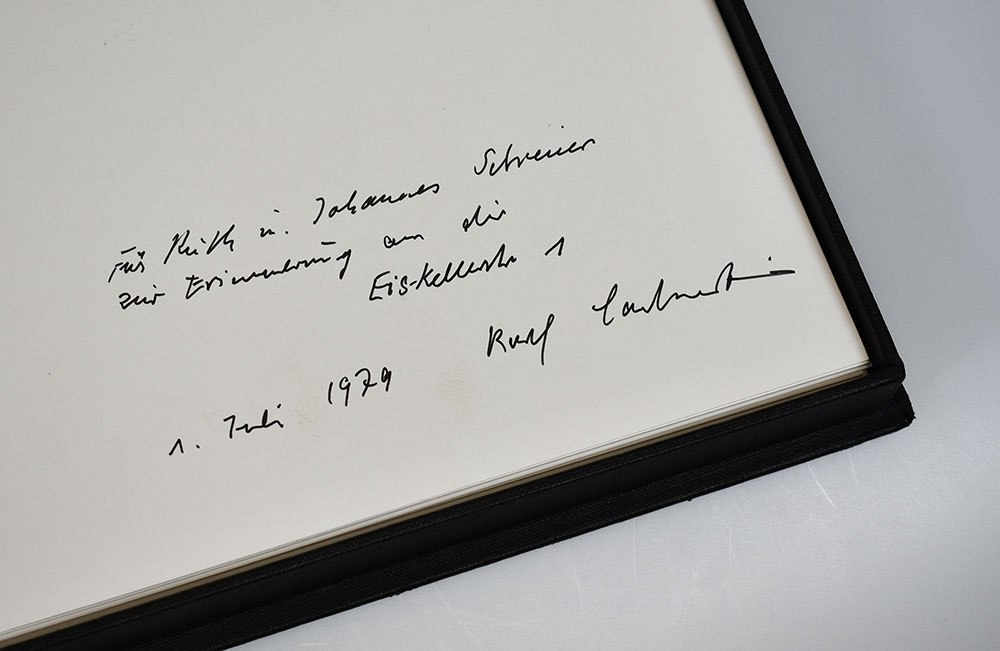 Für Ruth u. Johannes Schreiner
zur Erinnerung an die
Eis-Kellerstr 1
1. Juli 1979 Rolf